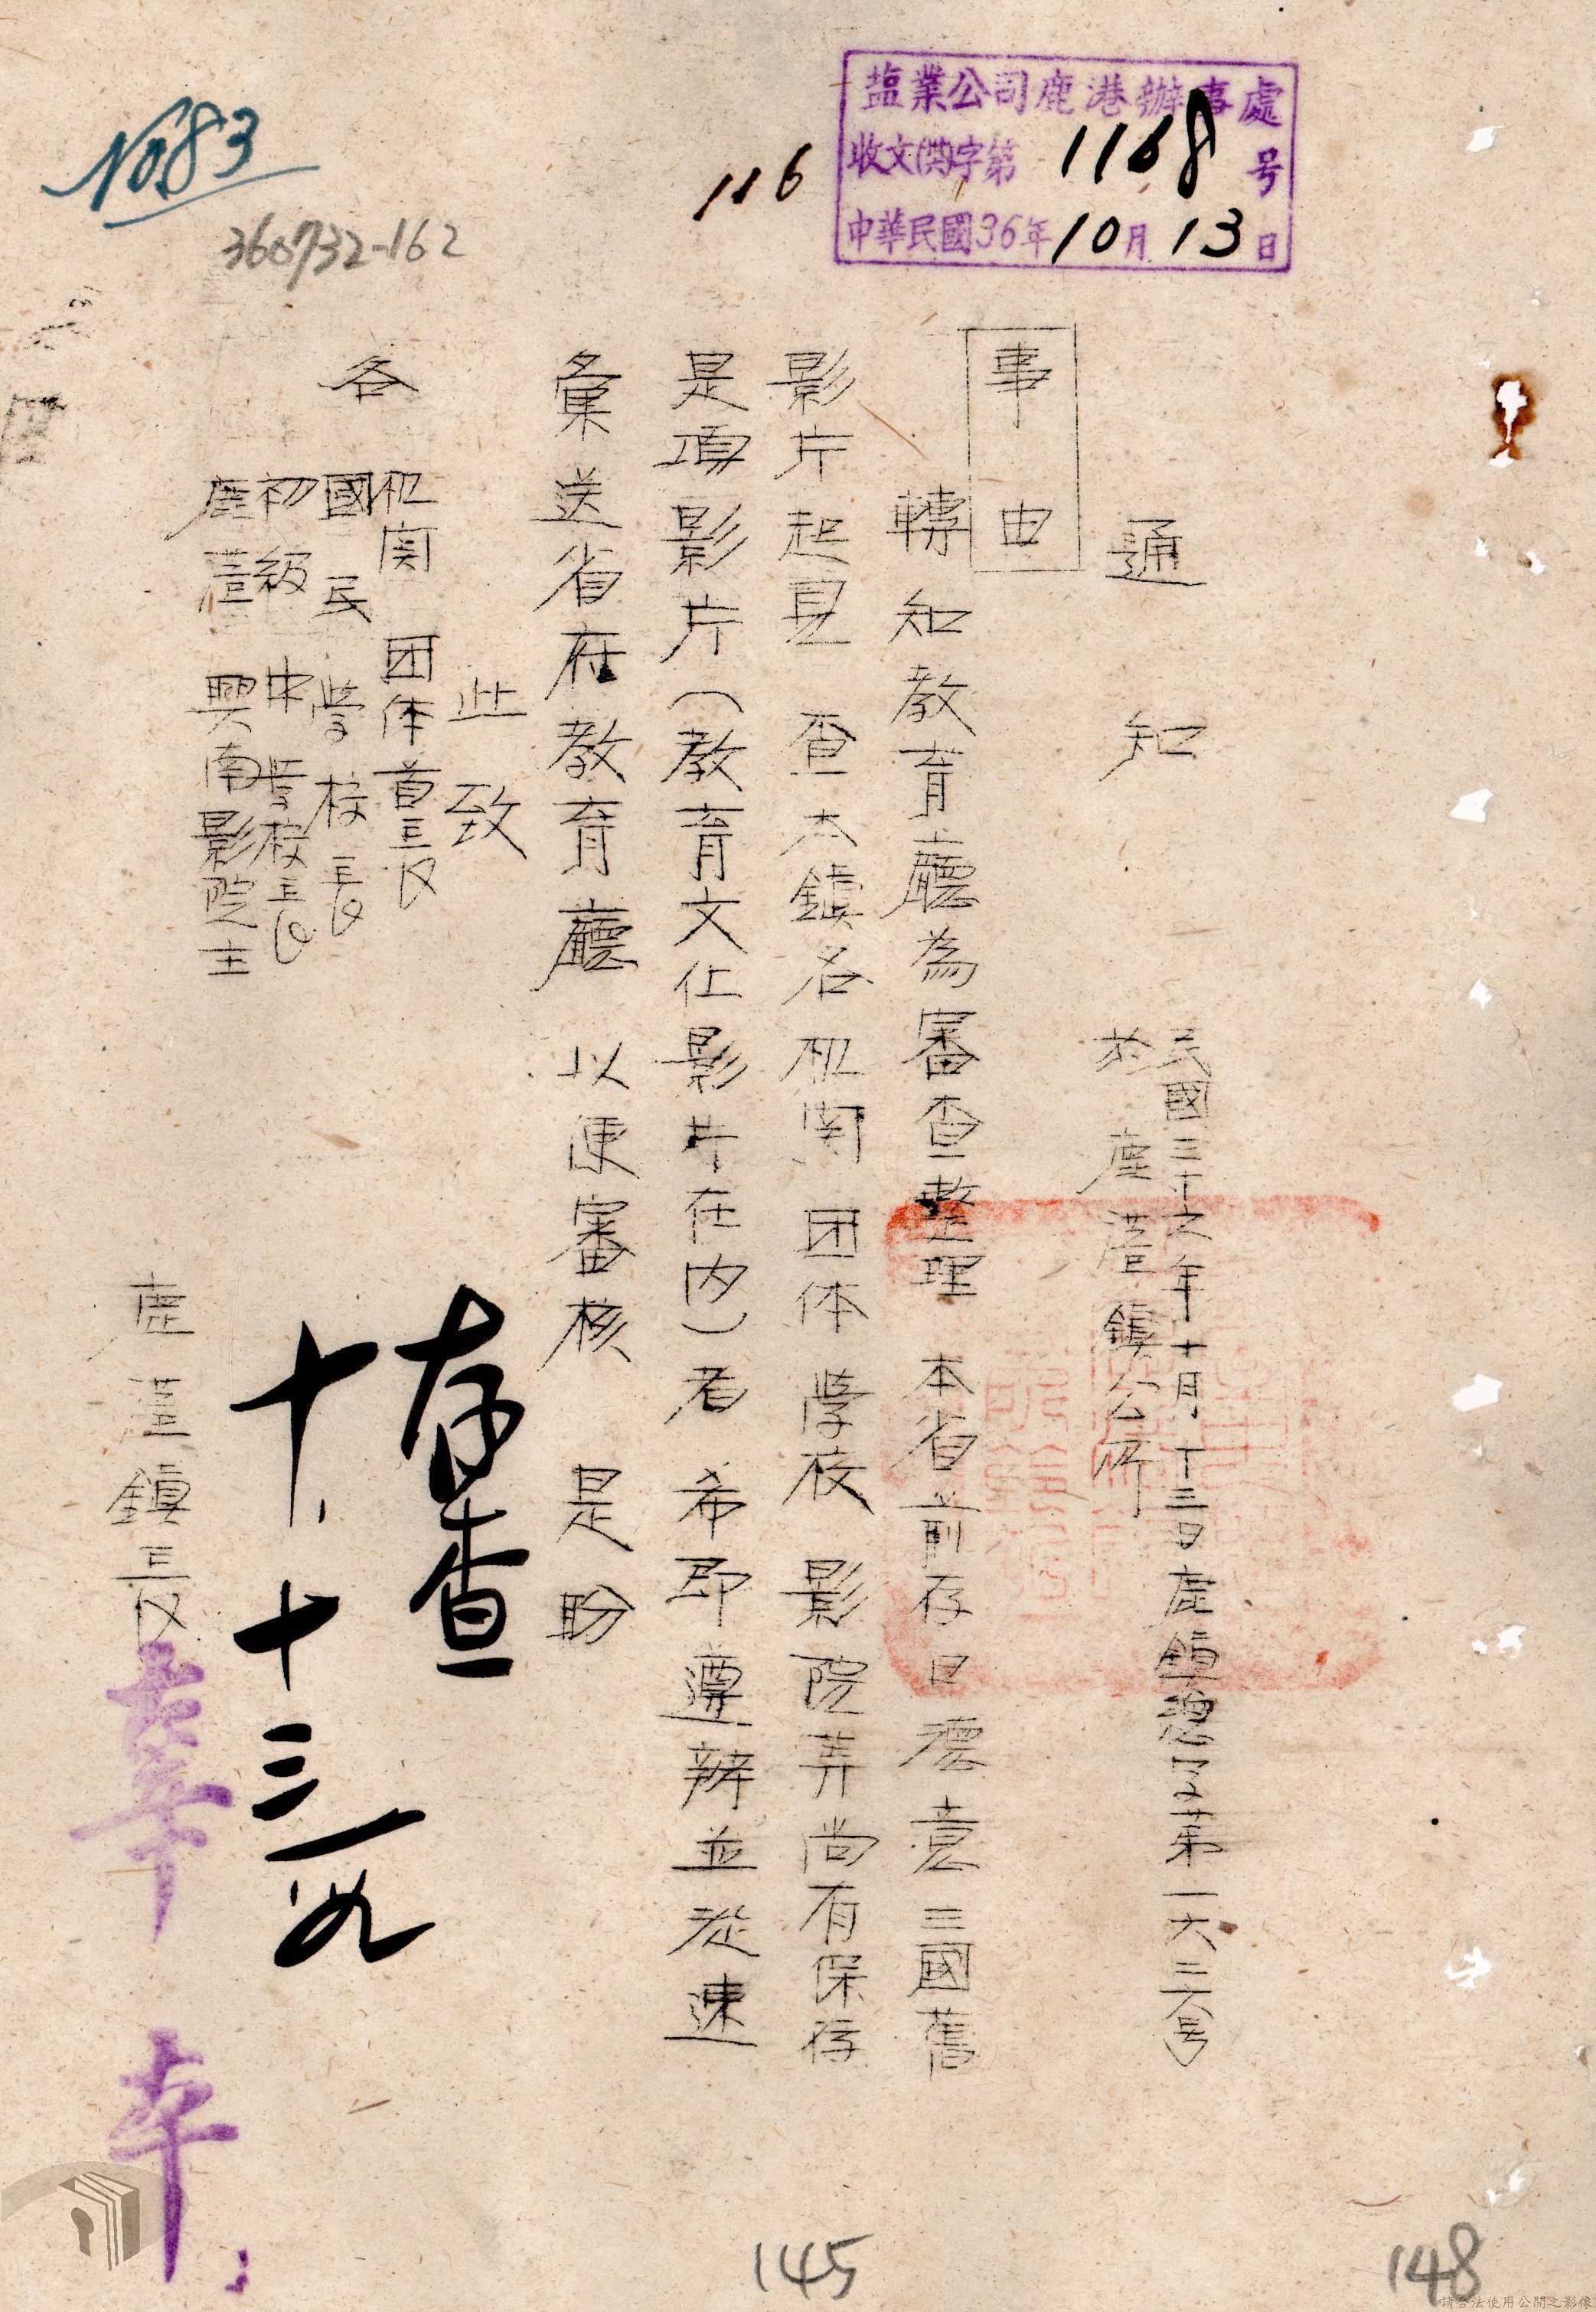 No.83
360732-162
116
塩業公司鹿港辦事處
收文(共)字第1168号
中華民國36年10月13日
通知
民國三十六年十月十三日鹿鎮總字第一六三六号
於鹿港鎮公所
事由
轉知教育廳為審查整理 本省前存日德意三國舊
影片起見 查本鎮各机関 団体 学校 影院等尚有保存
是項影片(教育文化影片在内)者 希即遵辦並從速
彙送省府教育廳 以便審核 是盼
此致
各
机関 団体首長
國民学校長
初級中学校長
鹿港 興南影院主
存查
十.十三
鹿港鎮長
145
148
請合法使用公開之影像